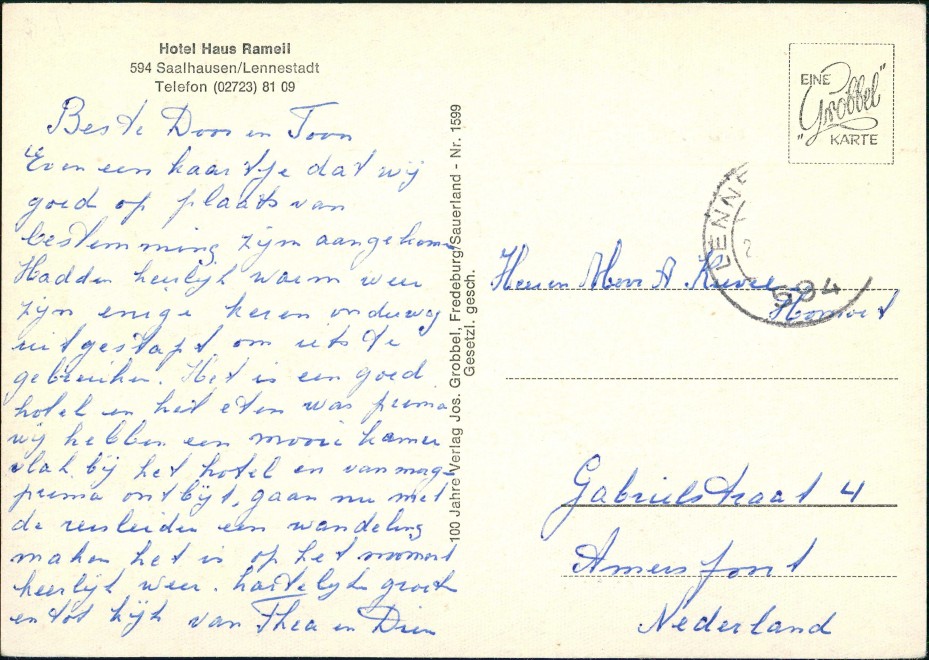 Hotel Haus Rameil
594 Saalhausen/Lennestadt
Telefon (02723) 81 09
Beste Door en Toon
Even een kaartje dat wij
goed op plaats van
bestemming zijn aangekomen
Hadden heerlijk warm weer
zijn enige keren onderweg
uitgestapt om iets te
gebruiken. Het is een goed
hotel en het eten was prima
wij hebben een mooie kamer
vlak bij het hotel en van morge
prima ontbijt, gaan nu met
de reisleider een wandeling
maken het is op het moment
heerlijk weer. hartelijk groeten
en tot kijk van Thea en Dien
100 Jahre Verlag Jos. Grobbel, Fredeburg/Sauerland - Nr. 1599
Gesetzl. gesch.
EINE
"Grobbel"
KARTE
LENNE
594
A
Gabrielstraat 4
Amersfoort
Nederland